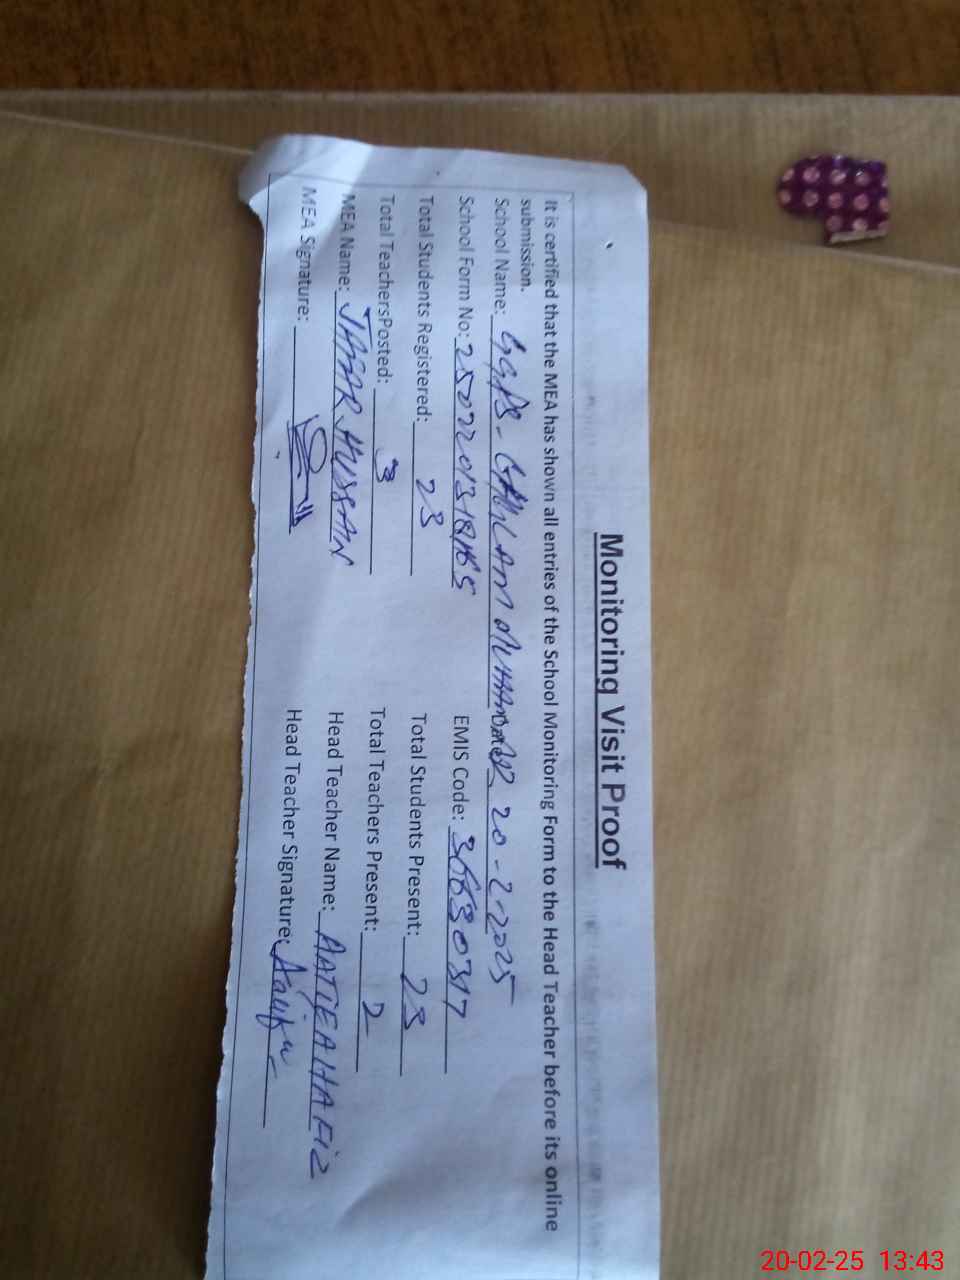 Monitoring Visit Proof
It is certified that the MEA has shown all entries of the School Monitoring Form to the Head Teacher before its online
submission.
School Name: GGPS - GHULAM MUHAMMAD 20-2-2025
School Form No: EMIS Code: 36630317
Total Students Registered: 23 Total Students Present: 23
Total TeachersPosted: 3 Total Teachers Present: 2
MEA Name: JAFAR HUSSAIN Head Teacher Name: HAFIZ
MEA Signature: Head Teacher Signature:
20-02-25 13:43